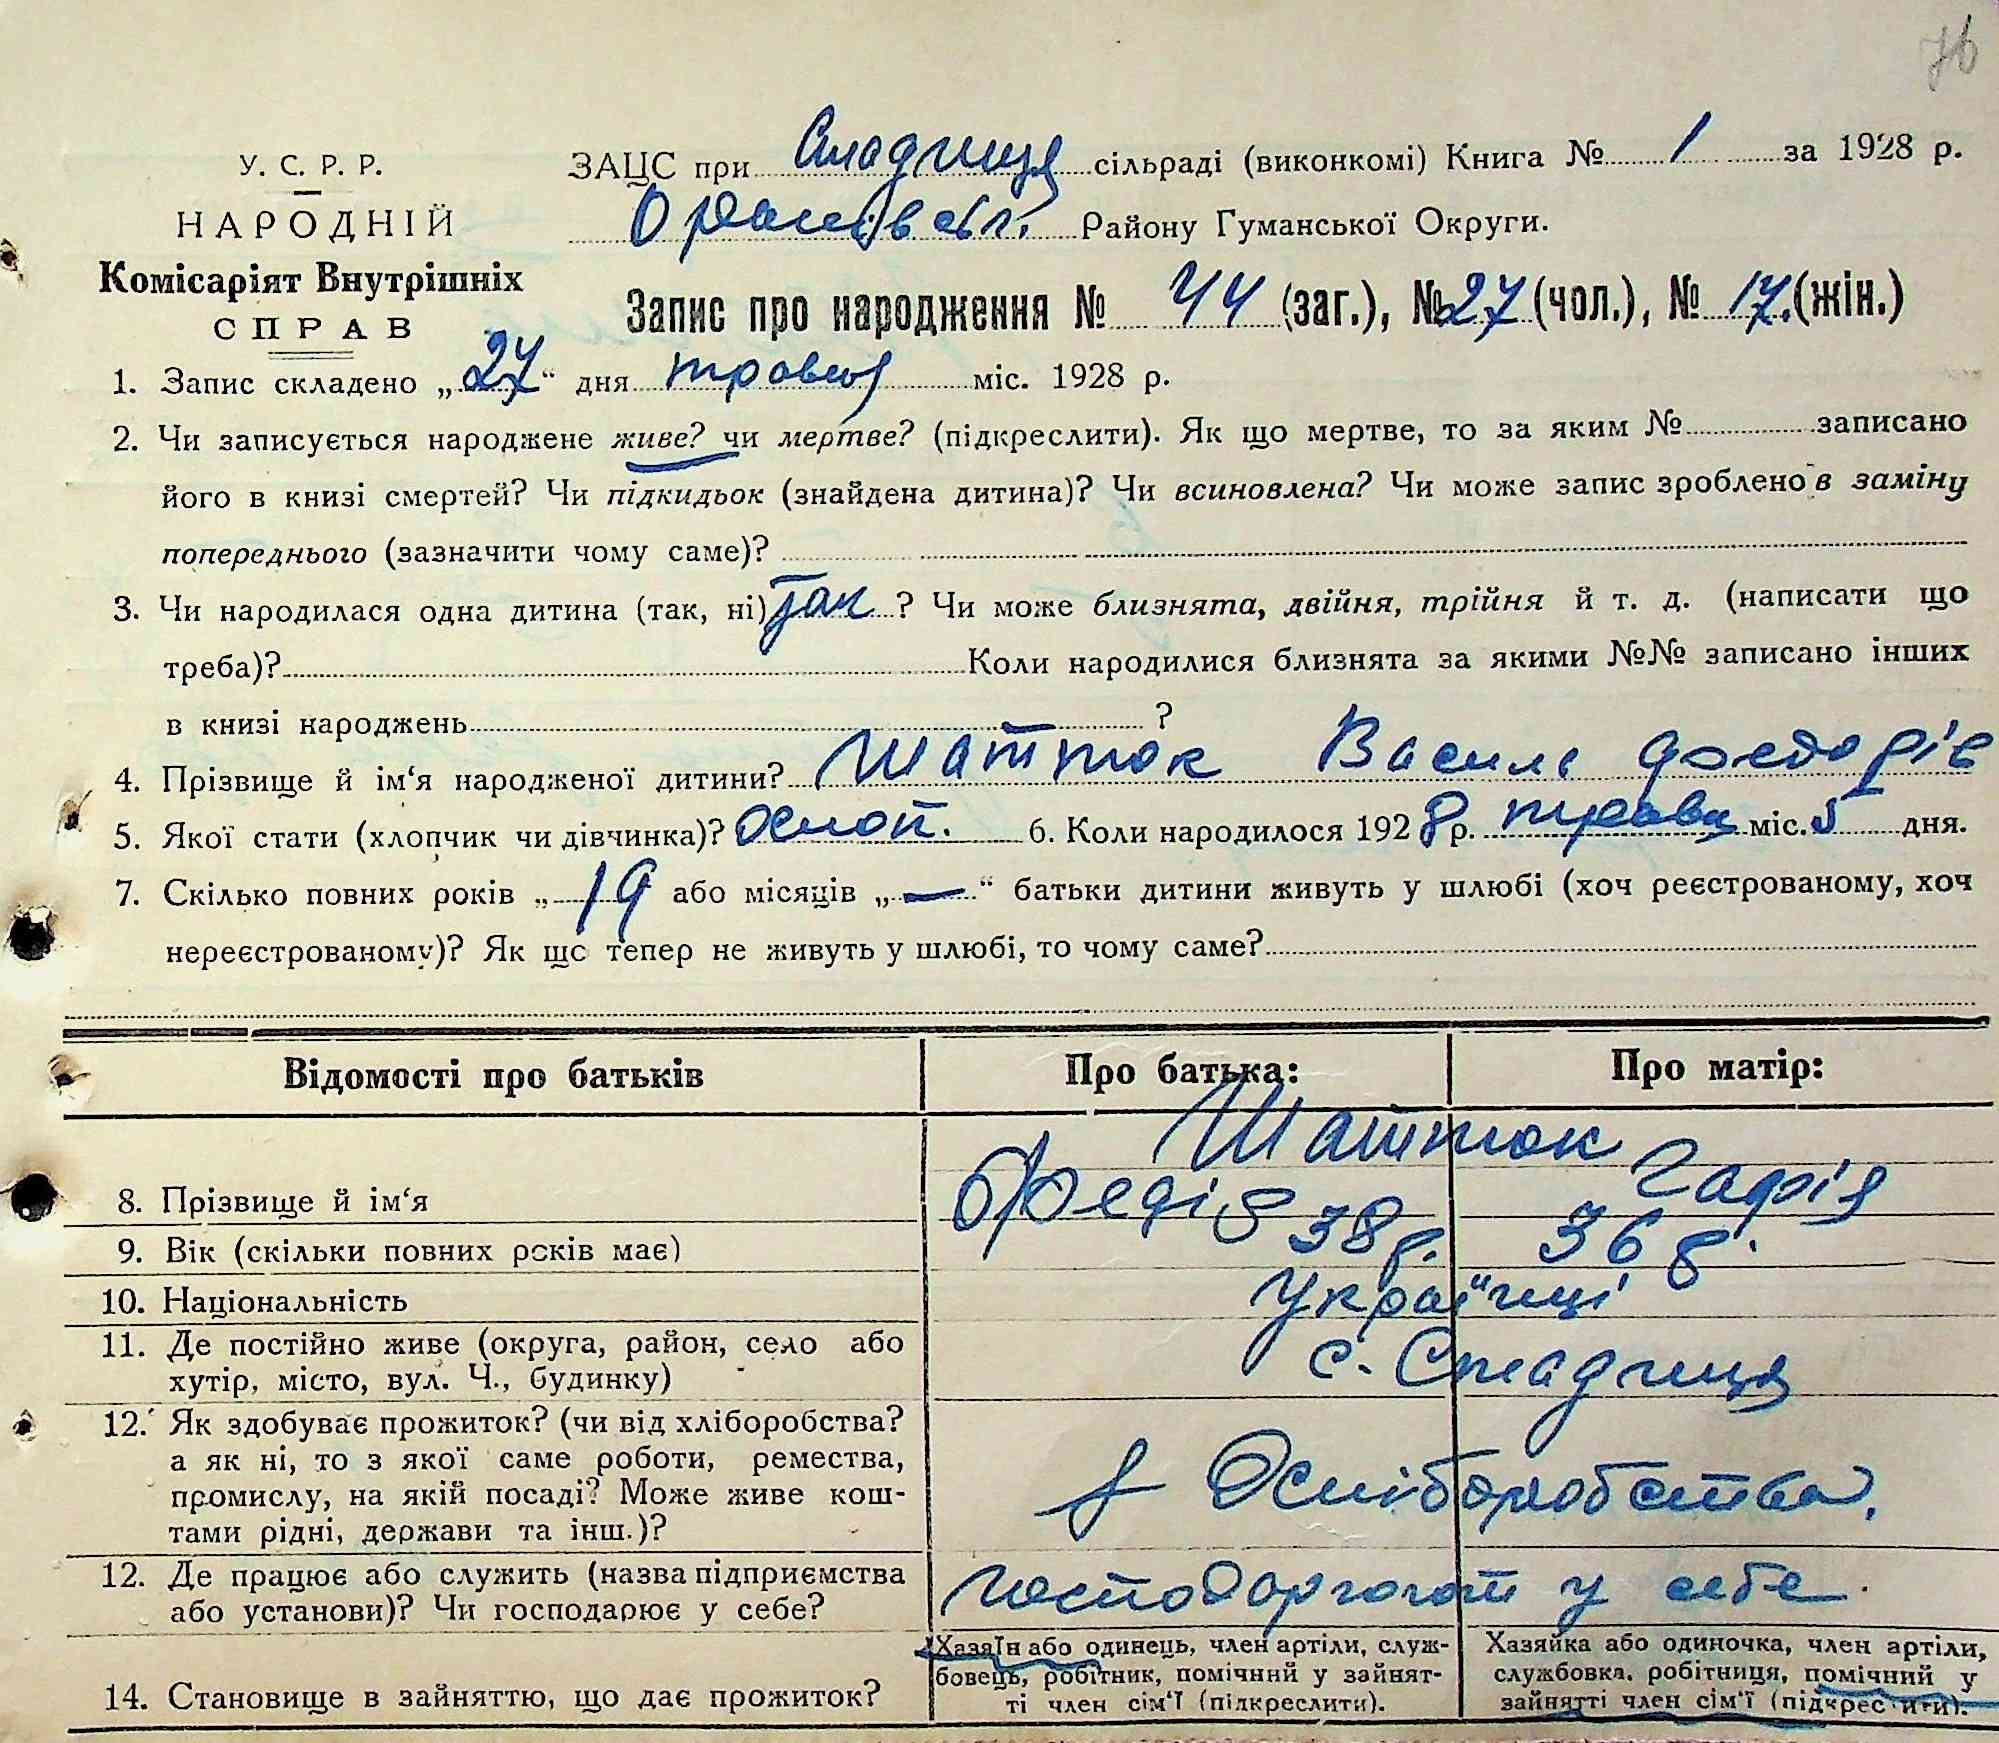 76
У. С. Р. Р.
НАРОДНІЙ
Комісаріят Внутрішніх
СПРАВ
ЗАЦС при Сладниця сільраді (виконкомі) Книга № 1 за 1928 р.
Району Гуманської Округи.
Запис про народження № 44 (заг.), № 27 (чол.), № 17. (жін.)
1. Запис складено „27“ дня травня міс. 1928 р.
2. Чи записується народжене живе? чи мертве? (підкреслити). Як що мертве, то за яким № записано
його в книзі смертей? Чи підкидьок (знайдена дитина)? Чи всиновлена? Чи може запис зроблено в заміну
попереднього (зазначити чому саме)?
3. Чи народилася одна дитина (так, ні) так ? Чи може близнята, двійня, трійня й т. д. (написати що
треба)? Коли народилися близнята за якими №№ записано інших
в книзі народжень ?
4. Прізвище й ім‘я народженої дитини? Василь
5. Якої стати (хлопчик чи дівчинка)? хлоп. 6. Коли народилося 1928 р. травня міс. 5 дня.
7. Скілько повних років „19 або місяців „—“ батьки дитини живуть у шлюбі (хоч реєстрованому, хоч
нереєстрованому)? Як що тепер не живуть у шлюбі, то чому саме?
Відомості про батьків Про батька: Про матір:
8. Прізвище й ім‘я Федір
9. Вік (скільки повних років має) 38 р. 36 р.
10. Національність Українці
11. Де постійно живе (округа, район, село або
хутір, місто, вул. Ч., будинку) с. Сладниця
12. Як здобуває прожиток? (чи від хліборобства?
а як ні, то з якої саме роботи, ремества,
промислу, на якій посаді? Може живе кош-
тами рідні, держави та інш.)? з Хліборобства.
12. Де працює або служить (назва підприємства
або установи)? Чи господарює у себе? господарюют у себе.
14. Становище в зайняттю, що дає прожиток?
Хазяїн або одинець, член артіли, служ-
бовець, робітник, помічний у зайнят-
ті член сім‘ї (підкреслити).
Хазяйка або одиночка, член артіли,
службовка, робітниця, помічний у
зайнятті член сім‘ї (підкреслити).